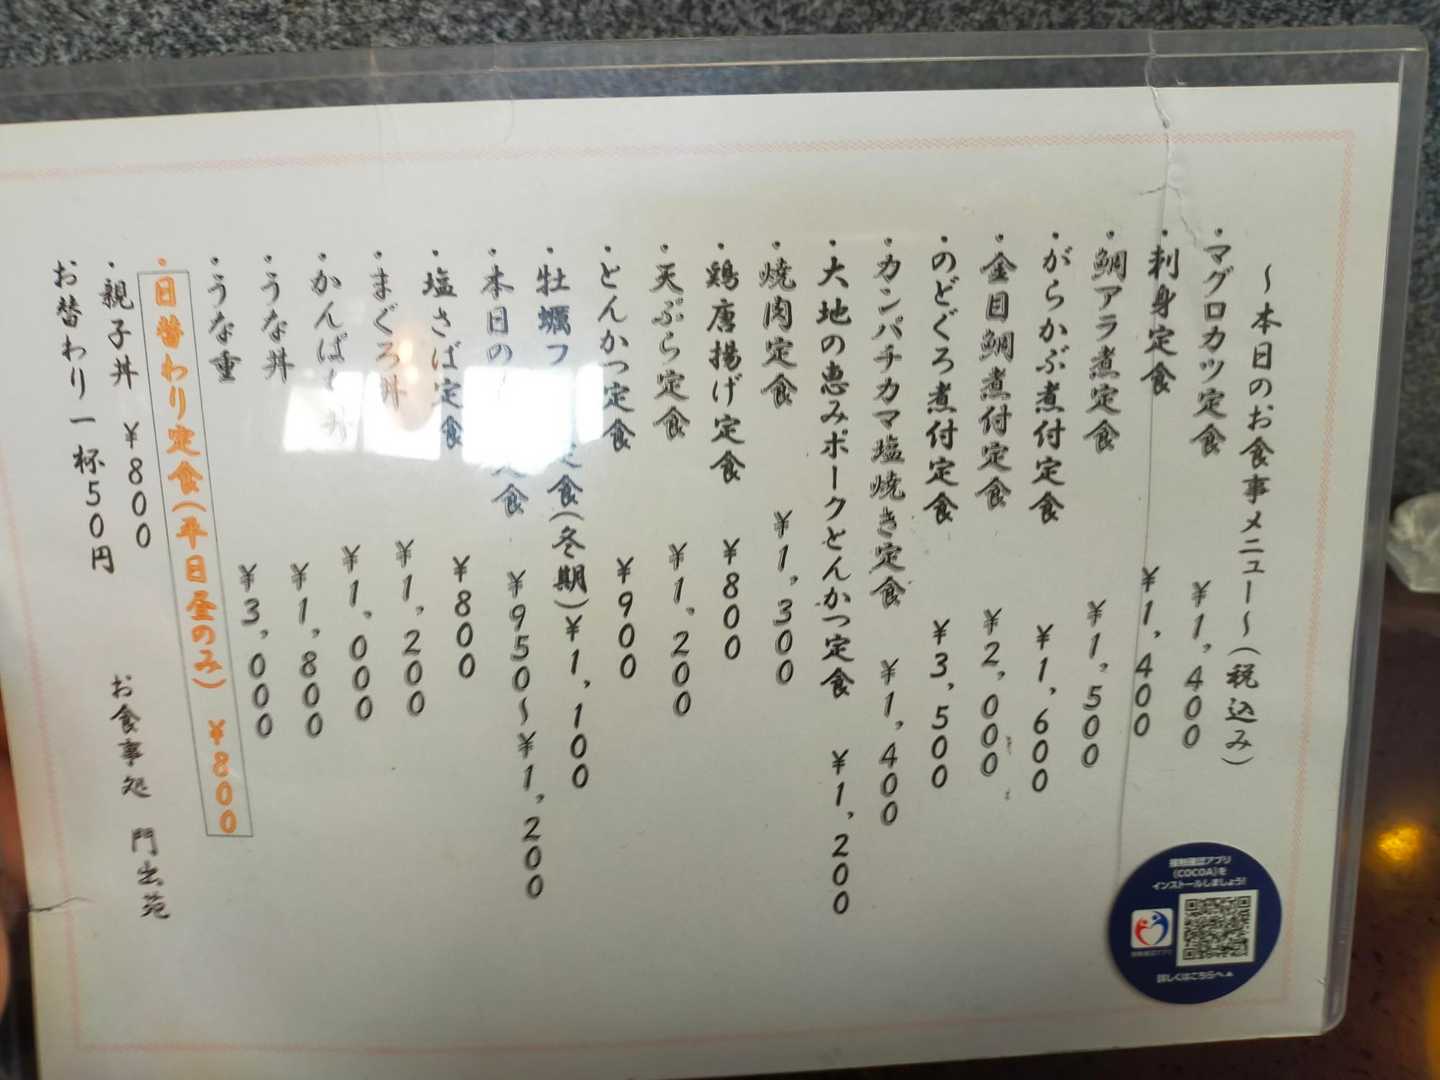 ～本日のお食事メニュー～(税込み)
・マグロカツ定食 ¥1,400
・刺身定食 ¥1,400
・鯛アラ煮定食 ¥1,500
・がらかぶ煮付定食 ¥1,600
・金目鯛煮付定食 ¥2,000
・のどぐろ煮付定食 ¥3,500
・カンパチカマ塩焼き定食 ¥1,400
・大地の恵みポークとんかつ定食 ¥1,200
・焼肉定食 ¥1,300
・鶏唐揚げ定食 ¥800
・天ぷら定食 ¥1,200
・とんかつ定食 ¥900
・牡蠣フ 定食(冬期)¥1,100
・本日の 定食 ¥950～¥1,200
・塩さば定食 ¥800
・まぐろ丼 ¥1,200
・かんぱ 丼 ¥1,000
・うな丼 ¥1,800
・うな重 ¥3,000
・日替わり定食(平日昼のみ) ¥800
・親子丼 ¥800
お替わり一杯50円
お食事処 門出苑
接触確認アプリ
(COCOA)を
インストールしましょう!
接触確認アプリ
詳しくはこちらへ▲